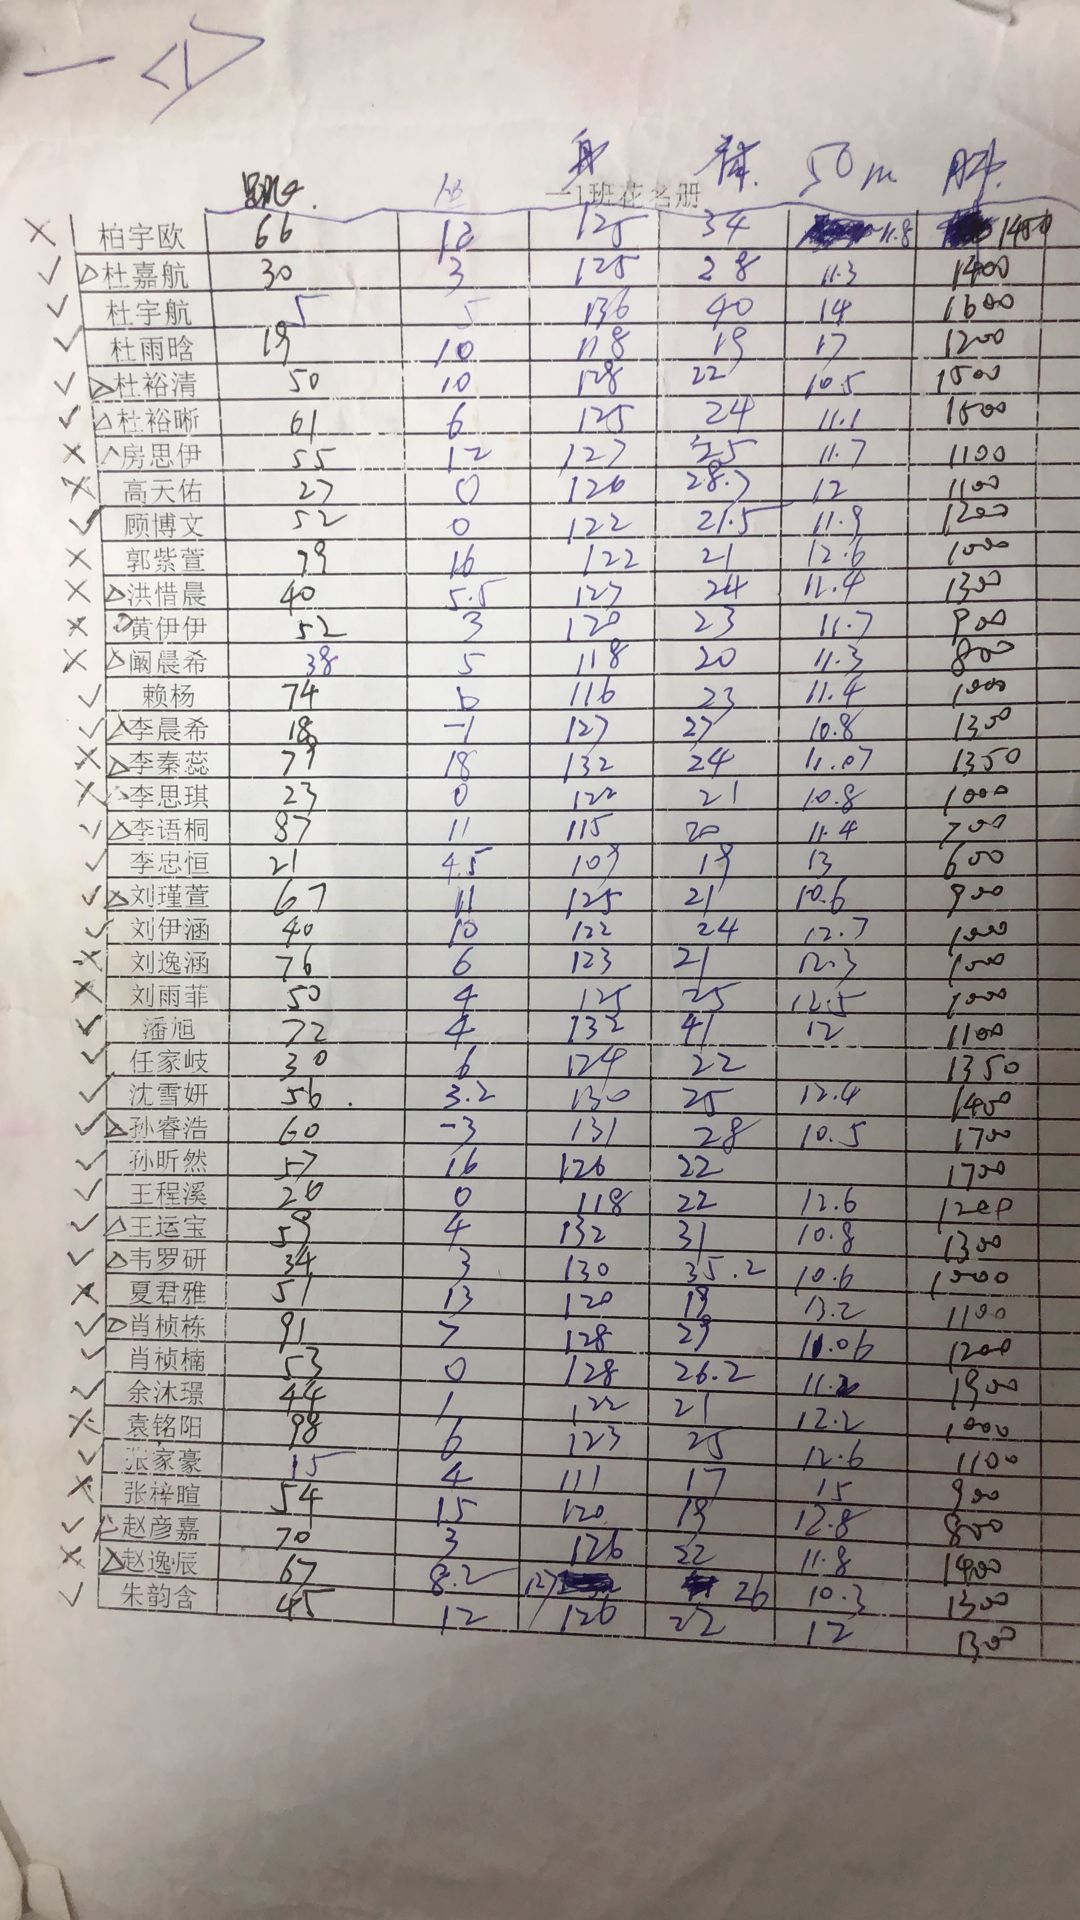 一 <1>
跳绳 坐 身 体 50m 肺
一1班花名册
× 柏宇欧 66 12 125 34 11.8 1450
✓ △ 杜嘉航 30 3 125 28 11.3 1400
✓ 杜宇航 5 5 136 40 14 1600
✓ 杜雨晗 19 10 118 19 17 1200
✓ △ 杜裕清 50 10 128 22 10.5 1500
✓ △ 杜裕晰 61 6 125 24 11.1 1500
× △ 房思伊 55 12 127 25 11.7 1100
× 高天佑 27 0 126 28.7 12 1100
✓ 顾博文 52 0 122 21.5 11.9 1200
× 郭紫萱 79 16 122 21 12.6 1000
× △ 洪惜晨 40 5.5 127 24 11.4 1300
× △ 黄伊伊 52 3 120 23 11.7 900
× △ 阚晨希 38 5 118 20 11.3 800
✓ 赖杨 74 6 116 23 11.4 1000
✓ △ 李晨希 18 -1 127 27 10.8 1300
× △ 李秦蕊 79 18 132 24 11.07 1350
× △ 李思琪 23 0 122 21 10.8 1000
✓ △ 李语桐 87 11 115 20 11.4 700
✓ 李忠恒 21 4.5 109 19 13 600
✓ △ 刘瑾萱 67 11 125 21 10.6 900
✓ 刘伊涵 40 10 122 24 12.7 1000
× 刘逸涵 76 6 123 21 12.3 1000
× 刘雨菲 50 4 125 25 12.5 1000
✓ 潘旭 72 4 132 41 12 1100
✓ 任家岐 30 6 124 22 1350
✓ 沈雪妍 56 3.2 130 25 12.4 1400
✓ △ 孙睿浩 60 -3 131 28 10.5 1700
✓ 孙昕然 57 16 126 22 1700
✓ 王程溪 20 0 118 22 12.6 1200
✓ △ 王运宝 59 4 132 31 10.8 1300
✓ △ 韦罗研 34 3 130 35.2 10.6 1000
× 夏君雅 51 13 120 19 13.2 1100
✓ △ 肖桢栋 91 7 128 29 11.06 1200
✓ 肖桢楠 53 0 128 26.2 11.2 1900
✓ 余沐璟 44 1 122 21 12.2 1000
× 袁铭阳 98 6 123 25 12.6 1100
✓ 张家豪 15 4 111 17 15 900
× 张梓暄 54 15 120 19 12.8 800
✓ △ 赵彦嘉 70 3 126 22 11.8 1400
× △ 赵逸辰 67 8.2 127 26 10.3 1300
✓ 朱韵含 45 12 126 22 12 1300